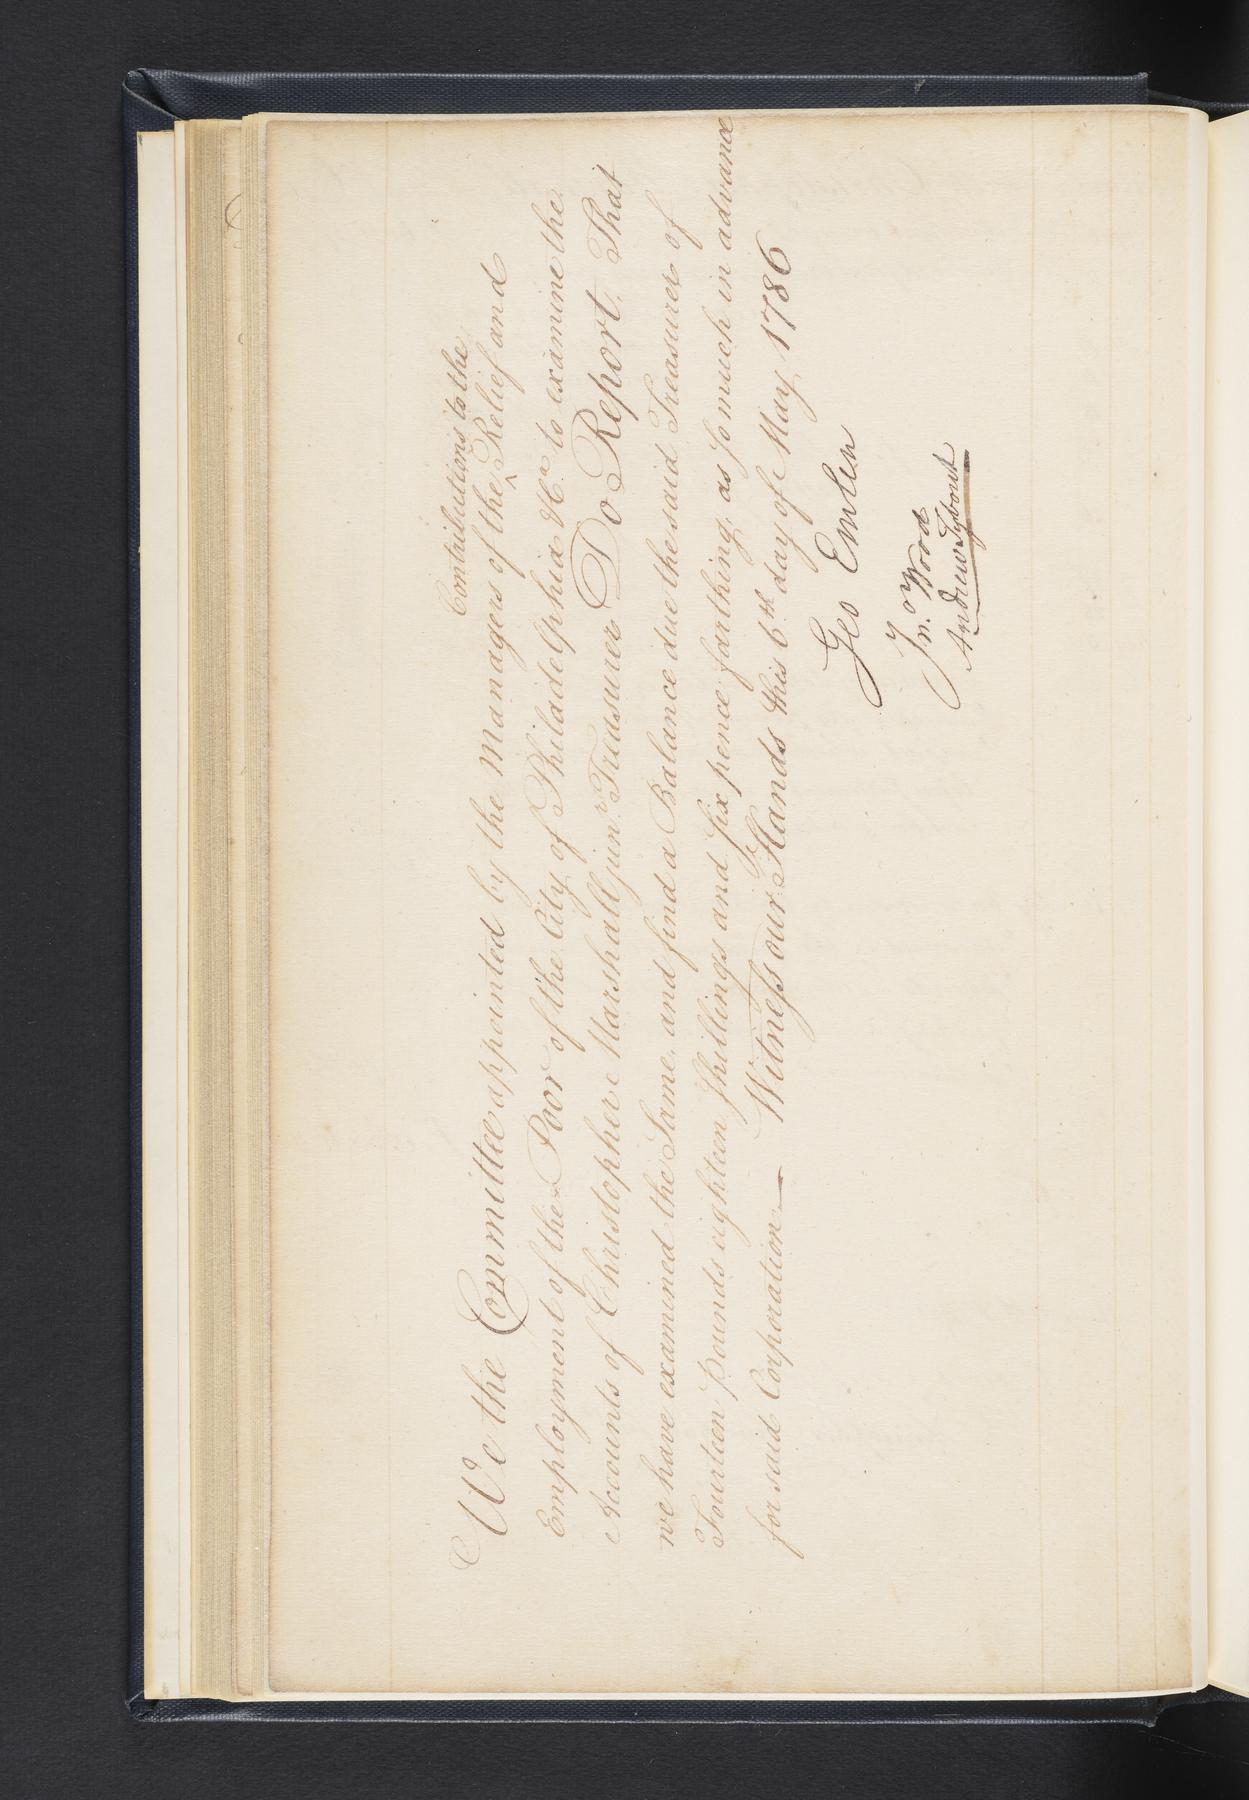 Contributions to the
We the Committee appointed by the Managers of the ‸ Relief and
Employment of the Poor of the City of Philadelphia &Ca. to examine the
Accounts of Christopher Marshall junr. Treasurer Do Report, That
we have examined the Same, and find a Balance due the said Treasurer of
Fourteen pounds eighteen Shillings and Six pence farthing, as so much in advance
for said Corporation — Witness our Hands this 6th day of May 1786
Geo Emlen
Jno Wood
Andrew Tybout